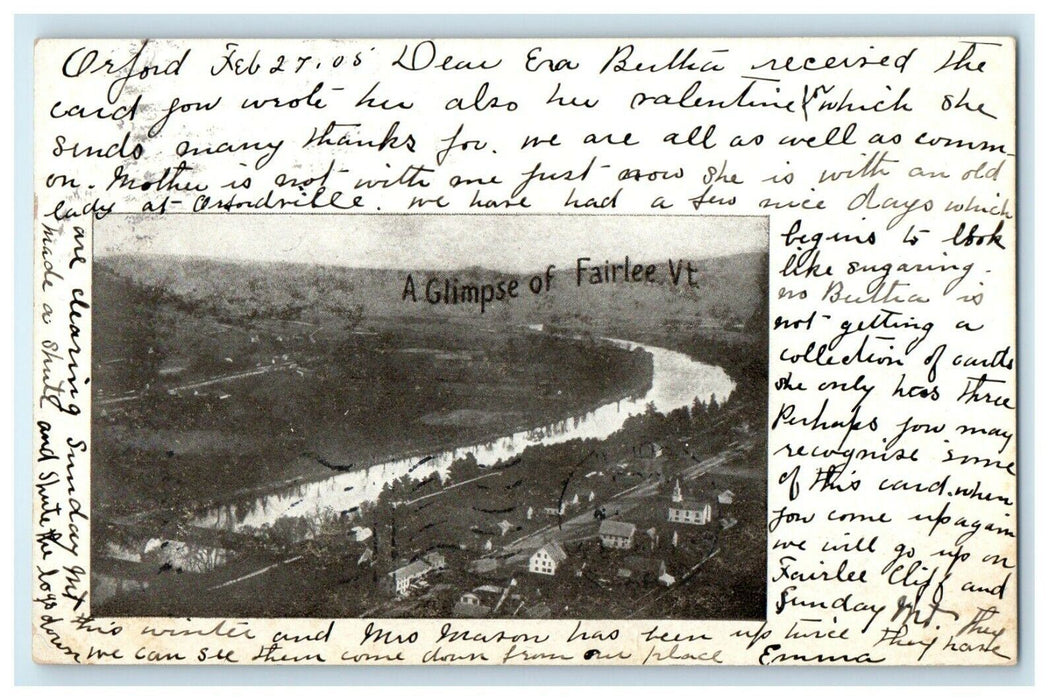 Orford Feb 27, 05 Dear Era Bertha received the
card you wrote her also her valentine for which she
sends many thanks for. we are all as well as comm-
on. Mother is not with me just now she is with an old
lady at Orfordville. we have had a few nice days which
begins to look
like sugaring.
no Bertha is
not getting a
collection of cards
she only has three
Perhaps you may
recognise some
of this card. when
you come up again
we will go up on
Fairlee Cliff and
Sunday Mt. They
are clearing Sunday Mt
this winter and Mrs Mason has been up twice they have
made a shute and shute the logs down
we can see them come down from our place Emma
A Glimpse of Fairlee Vt